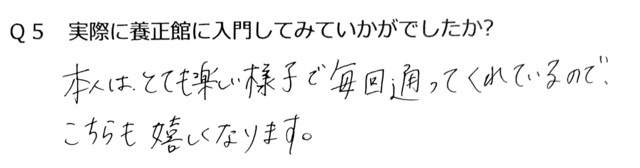 Q５　実際に養正館に入門してみていかがでしたか?
本人は、とても楽しい様子で毎回通ってくれているので、
こちらも嬉しくなります。